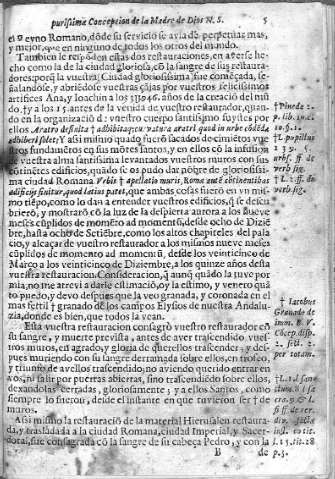 puríssima Concepcion de la Madre de Dios N.S. 5
el Reyno Romano, dõde su servicio se avia de perpetuar mas,
y mejor, que en ninguno de todos los otros del mundo.
Tambien le respõden estas dos restauraciones, en averse he-
cho como la de la ciudad gloriosa, cõ la sangre de sus restaura-
dores: porq̃ la vuestra, Ciudad gloriosissima, fue começada, se-
ñalandose, y abriẽdose vuestras çãjas por vuestros felicissimos
artifices Ana, y Ioachin a los
años de la creacion del mũ-
do, † y a los 15. antes de la venida de vuestro restaurador, quan-
do en la organizaciõ d̃ vuestro cuerpo santissimo fuystes por
ellos Aratro
† adhibita
vestros fundamẽtos en sus mõtes santos, y en ellos cõ la infusiõ
de vuestra alma santissima levantados vuestros muros con sus
edificios, quãdo se os pudo dar nõbre de gloriosissi-
ma ciudad Romana Vrbis † apellatio muris, Romæ
ædificijs finitur, quod latius patet, que ambas cosas fuerõ en vn mis-
mo tiẽpo, como lo dan a entender vuestros edificios, q̃ se descu-
brierõ, y mostrarõ cõ la luz de la despierta aurora a los nueve
meses cũplidos de momẽto ad momentũ, desde ocho de Diziẽ-
bre, hasta ocho de Setiẽbre, como los altos chapiteles del pala-
cio, y alcaçar de vuestro restaurador a los mismos nueve meses
cũplidos de momento ad momentũ, desde los veinticinco de
Março a los veinticinco de Diziembre, a los quinze años desta
vuestra restauracion. Consideracion, q̃ aunq̃ quãdo la juve por
mia, no me atrevi a darle estimaciõ, oy la estimo, y venero quã
to puedo, y devo despues que la veo granada, y coronada en el
mas fertil † granado de los campos Elysios de nuestra Andalu-
zia, donde es bien, que todos la vean.
Esta vuestra restauracion consagrò vuestro restaurador cõ
su sangre, y muerte prevista, antes de aver trascendido vues-
tros muros, en agrado, y gloria de querellos trascender, y des-
pues muriendo con su sangre derramada sobre ellos, en trofeo,
y triunfo de avellos trascendido, no aviendo querido entrar en
vos, ni salir por puertas abiertas, sino trascendiẽdo sobre ellos,
dexandolas cerradas, gloriosamente; y a ellos Santos, como
siempre lo fueron, desde el instante en que tuvieron ser † de
muros.
Assi mismo la restauraciõ de la material Hierusalen restaura-
da, y trasladada a la ciudad Romana, ciudad Imperial, y Sacer-
dotal, fue consagrada cõ la sangre de su cabeça Pedro, y con la
B de
† Pineda 2.
† L. pupillus
239. §.
urbs. ff. de
verb. sig.
† L. 2. ff. de
verb. sig.
† Iacobus
Granado de
imm. B. V.
Cõcep. disp.
2. sect. 2.
per totam.
p. 5.